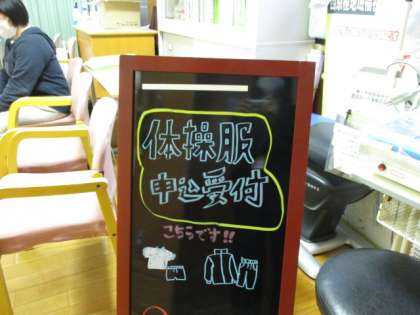 体操服
申込受付
こちらです!!